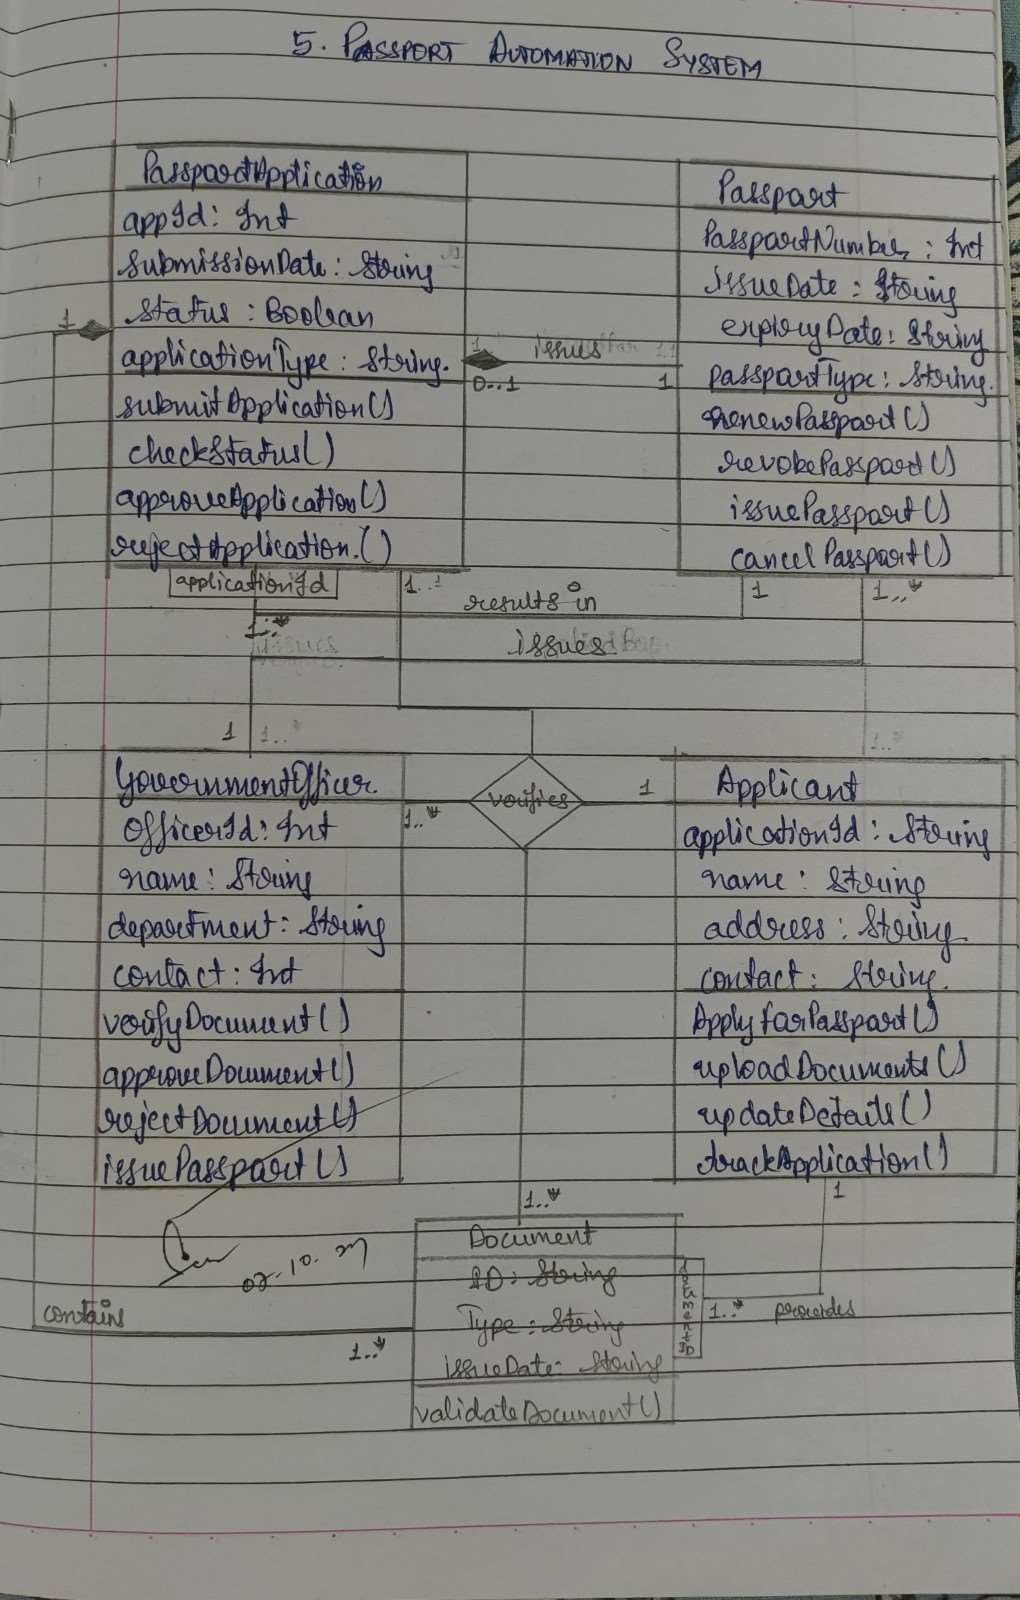 5. PASSPORT AUTOMATION SYSTEM
PassportApplication
appId: Int
submissionDate: String
status: Boolean
applicationType: String.
submitApplication()
checkStatus()
approveApplication()
rejectApplication.()
applicationId
Passport
PassportNumber: Int
issueDate: String
expiryDate: String
passportType: String.
renewPassport()
revokePassport()
issuePassport()
cancelPassport()
1
1
issues
0..1
1
1..1
results in
1
1..*
1..*
issues
1
1..*
1..*
GovernmentOfficer.
OfficerId: Int
name: String
department: String
contact: Int
verifyDocument()
approveDocument()
rejectDocument()
issuePassport()
1..*
verifies
1
Applicant
applicationId: String
name: String
address: String
contact: String.
ApplyforPassport()
uploadDocuments()
updateDetails()
trackApplication()
1..*
1
Document
ID: String
Type: String
issueDate: String
validateDocument()
documentID
1..* provides
contains
1..*